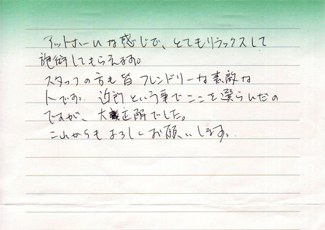 アットホームな感じで、とてもリラックスして
施術してもらえます。
スタッフの方も皆フレンドリーな素敵な
人です。近所という事でここを選らんだの
ですが、大正解でした。
これからもよろしくお願いします。